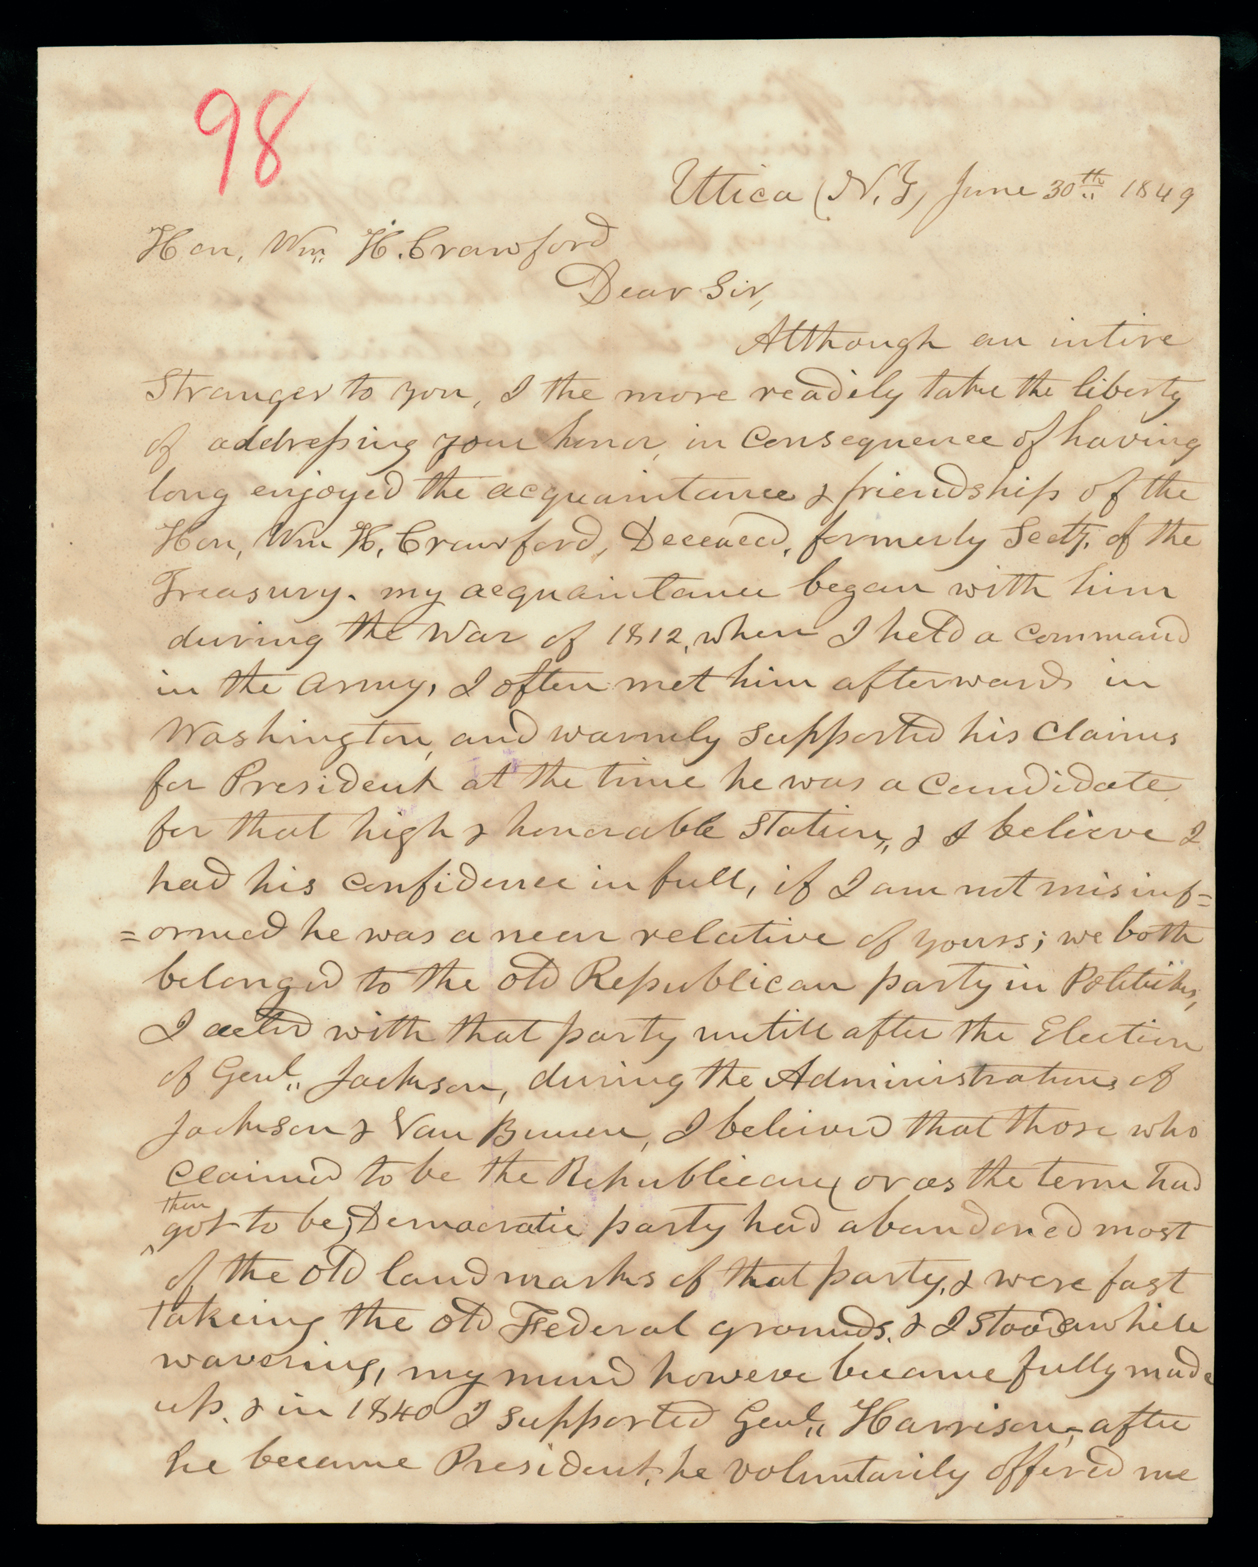 98
Uttica (N.Y) June 30th 1849
Hon, Wm H. Crawford
Dear Sir,
Although an intire
Stranger to you, I the more readily take the liberty
of addressing your honor, in consequence of having
long enjoyed the acquaintance & friendship of the
Hon, Wm H. Crawford, Deceaced, formerly Secty. of the
Treasury. my acquaintance began with him
during the War of 1812, when I held a command
in the army, I often met him afterwards in
Washington, and warmly supported his claims
for President at the time he was a candidate
for that high & honorable station, & I believe I
had his confidence in full, if I am not misinf=
=ormed he was a near relative of yours; we both
belonged to the old Republican party in Politicks,
I acted with that party untill after the Election
of Genl. Jackson, during the Administrations of
Jackson & Van Buren, I believed that those who
claimed to be the Republican, (or as the term had
then
got to be) Democratic party had abandoned most
of the old landmarks of that party, & were fast
takeing the old Federal grounds, & I stood awhile
wavering, my mind howeve became fully made
up. & in 1840 I supported Genl. Harrison, after
he became President, he voluntarily offered me